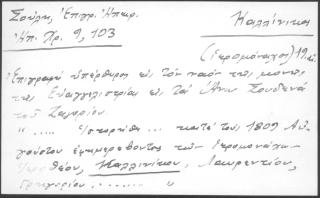 Σούλη, Ἐπιγρ. Ἠπειρ. Καλλίνικος
Ἠπ. Χρ. 9, 103
(ἱερομόναχος) 19 αἰ.
Ἐπιγραφὴ ὑπέρθυρος εἰς τὸν ναὸν τῆς μονῆς
τῆς Εὐαγγελιστρίας εἰς τὰ Ἄνω Σουδενὰ
τοῦ Ζαγορίου
" ..... ἱστορήθη ... κατὰ τοὺς 1809 Αὐ-
γούστου ἐφημερεύοντος τῶν ἱερομονάχων
θέου, Καλλινίκου, Λαυρεντίου,
Γρηγορίου ....... "